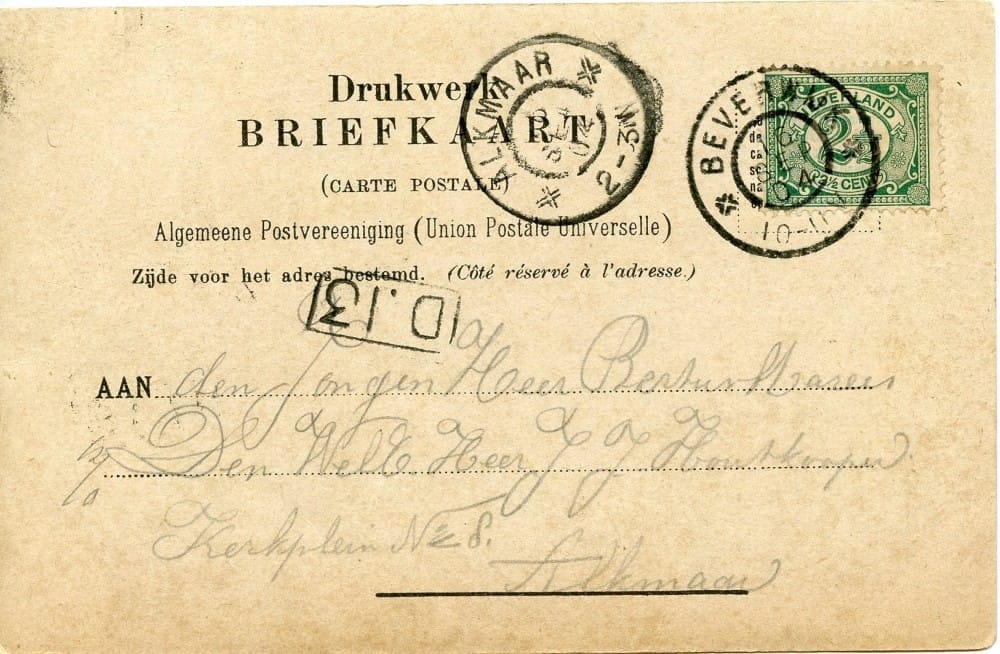 Drukwerk
BRIEFKAART
(CARTE POSTALE)
Algemeene Postvereeniging (Union Postale Universelle)
Zijde voor het adres bestemd. (Côté réservé à l'adresse.)
ALKMAAR
2-3N
BEVERWIJK
10-11V
NEDERLAND
2½
2½ CENT
D.13
AAN den Jongen Heer
Den WelE. Heer J J Houtkooper
Kerkplein No 8.
Alkmaar